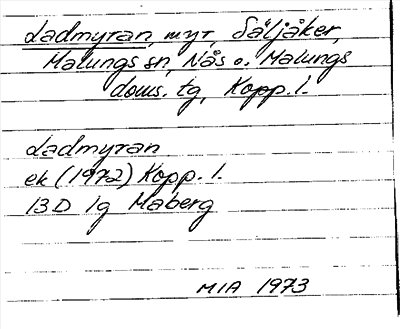 Ladmyran, myr, Säljåker,
Malungs sn, Nås o. Malungs
doms. tg, Kopp. l.
Ladmyran
ek (1972) Kopp. l.
13D 1g Maberg
MIA 1973